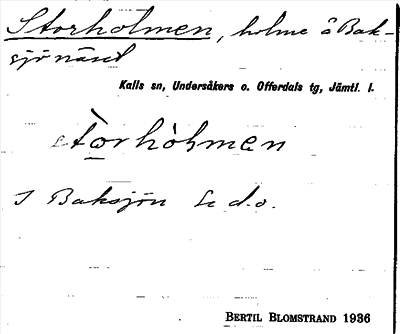 Storholmen, holme å Bak-
sjönäset
Kalls sn, Undersåkers o. Offerdals tg, Jämtl. l.
storhòlmen
I Baksjön Se d.o.
BERTIL BLOMSTRAND 1936